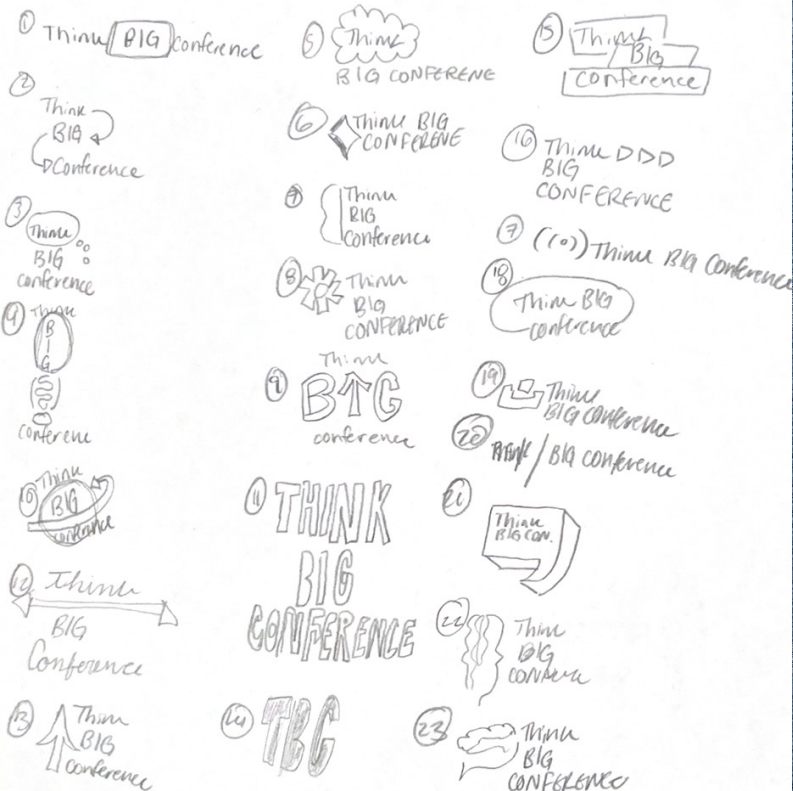 1
Think BIG Conference
2
Think
BIG
Conference
3
Think
BIG
conference
4
Think
B
I
G
conference
10
Think
BIG
conference
12
Think
BIG
Conference
13
Think
BIG
conference
5
Think
BIG CONFERENE
6
Think BIG
CONFERENE
7
Think
BIG
Conference
8
Think
BIG
CONFERENCE
9
Think
B G
conference
11
THINK
BIG
CONFERENCE
14
TBC
15
Think
Big
Conference
16
Think
BIG
CONFERENCE
7
((o)) Think BIG Conference
18
Think BIG
conference
19
Think
BIG Conference
20
think / BIG conference
21
Think
BIG CON.
22
Think
BIG
23
Think
BIG
CONFERENCE